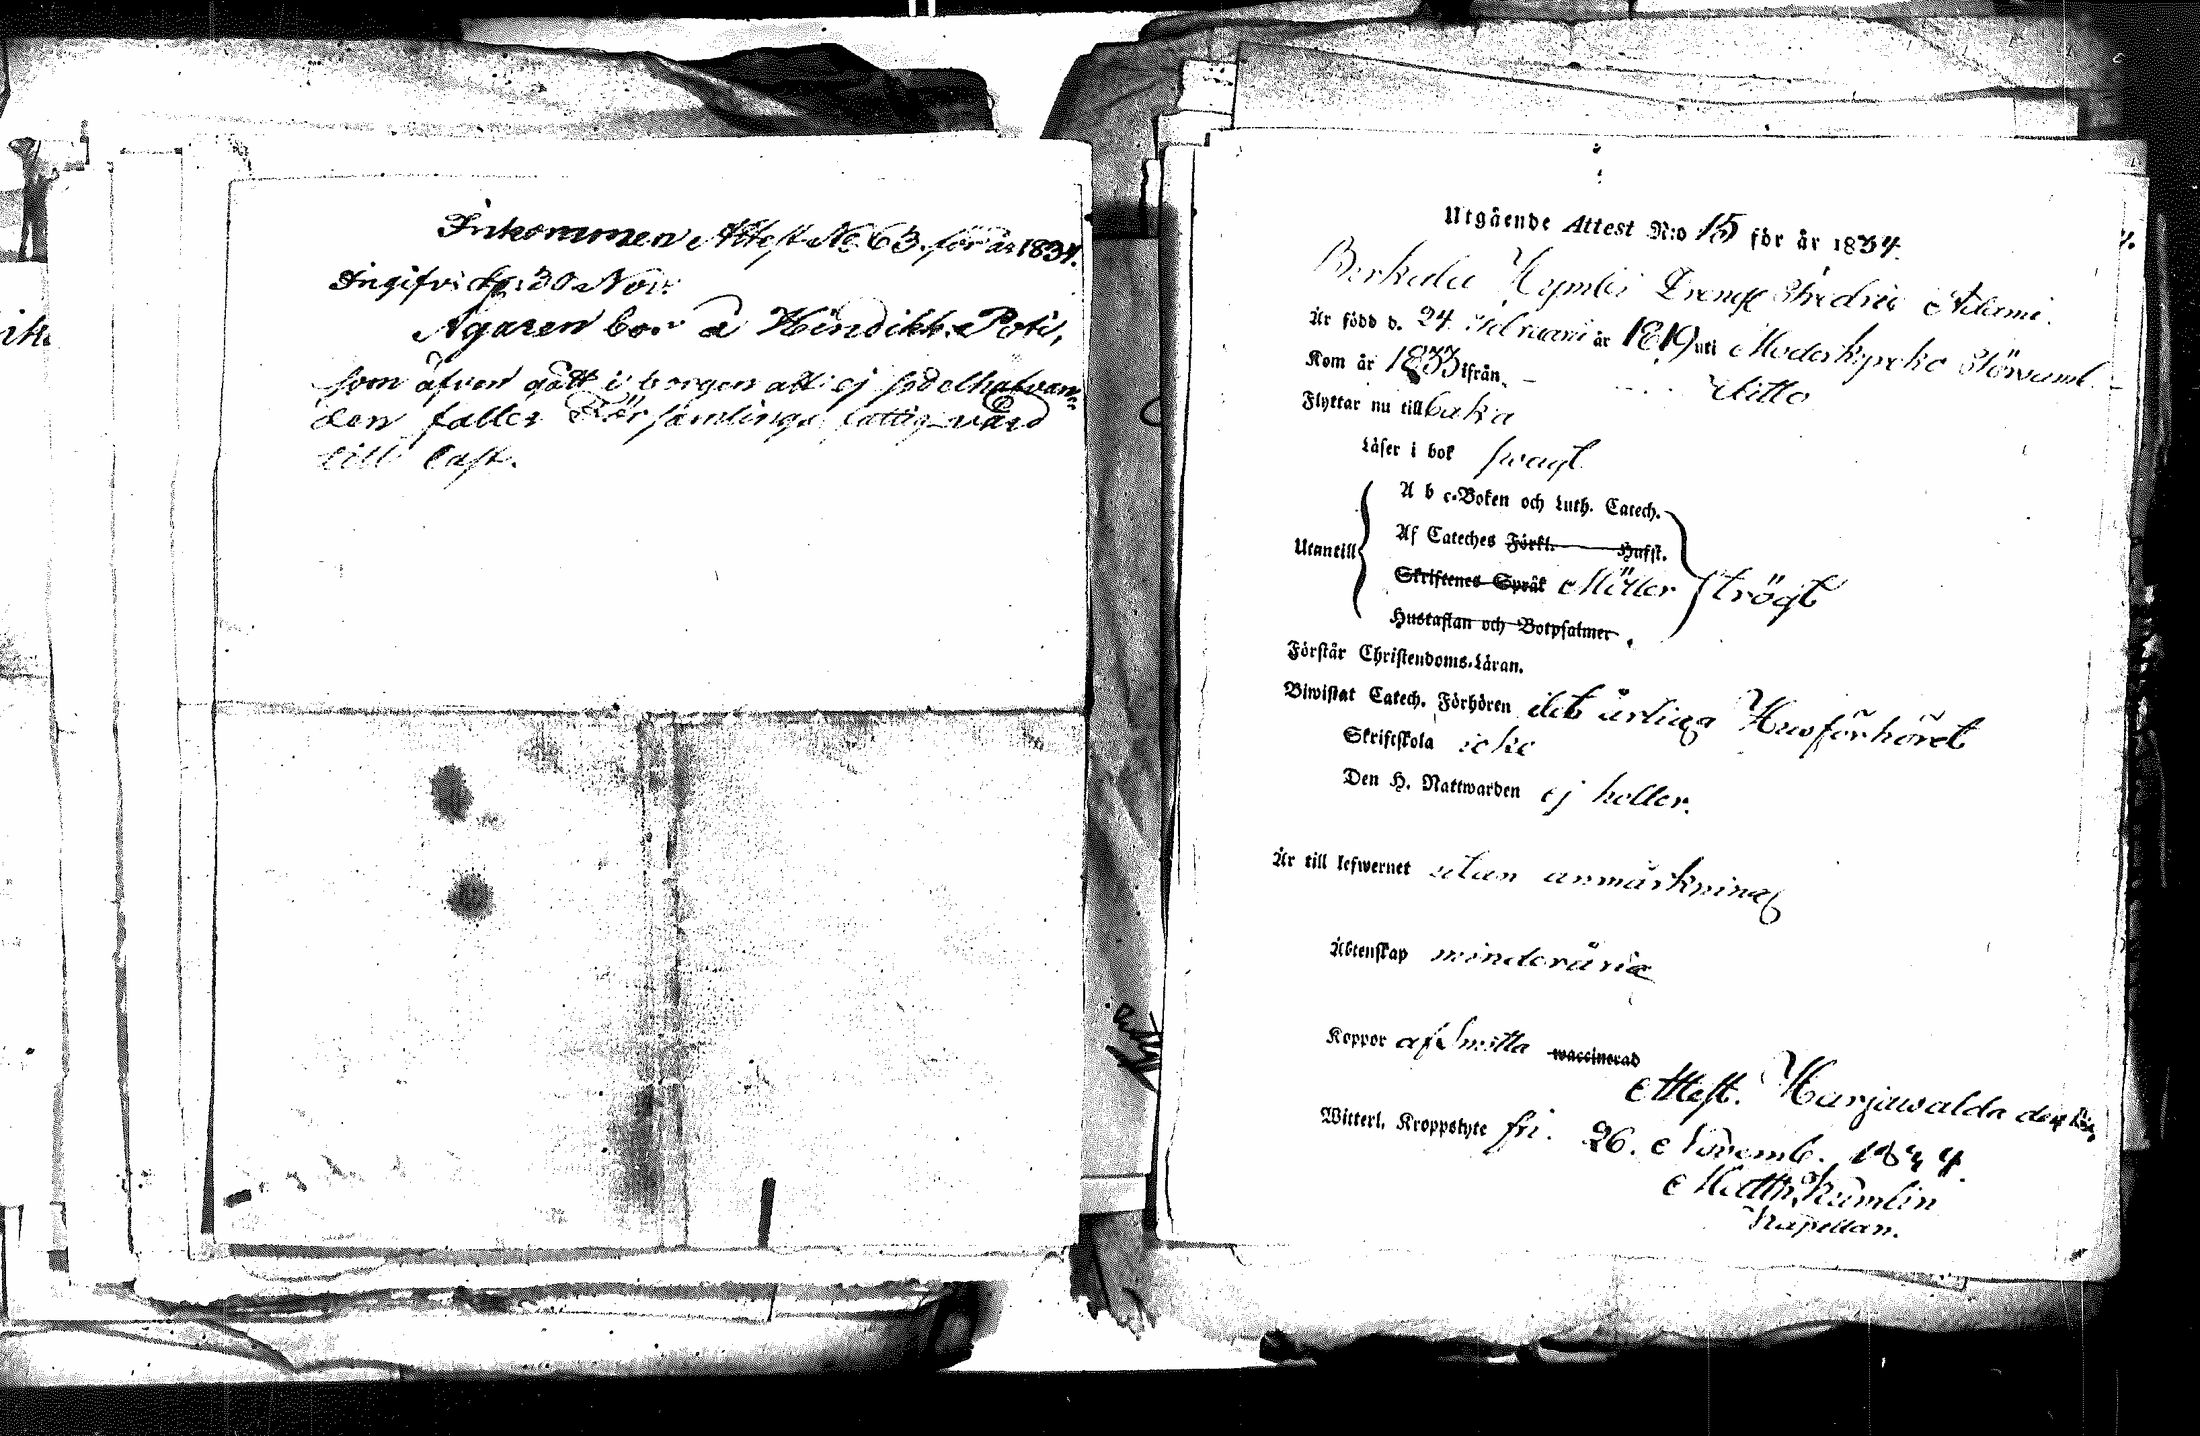 Inkommen Attest No 63. för år 1834.
Ingifvi: d. 30 Nov:
Ägaren bor å Hindikk. Poti,
som äfven gått i borgen att ej
den faller Församlings fattigvård
till last.
Utgående Attest N:o 15 för år 1834.
Drengen Adami.
Är född d. 24 Februarii år 1819 uti Moderkyrko
Kom år 1833 ifrån ditto
Flyttar nu till baka
Läser i bok swagt
A b c-Boken och Luth. Catech.
Af Cateches Förkl. Husst.
Utantill
Skriftenes Språk Möller trögt
Hustaflan och Botpsalmer
Förstår Christendoms-Läran.
Biwistat Catech. Förhören det årliga Husförhöret
Skriftskola icke
Den H. Nattwarden ej heller.
Är till lefwernet utan anmärkning
Äktenskap minderårig
Koppor af Smitta waccinerad
Attest. Harjawalda den
Witterl. Kroppslyte fri. 26. Novemb. 1834.
Matth. Kumlin
Kapellan.